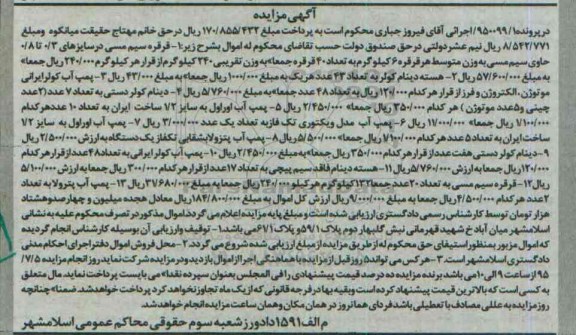 آگهی مزایده
در پرونده ۹۵۰۰۹۹/۱ اجرائی آقای فیروز جباری محکوم است به پرداخت مبلغ ۱۷۰/۸۵۵/۴۳۳ ریال در حق خانم مهتاج حقیقت میانکوه و مبلغ
۸/۵۴۲/۷۷۱ ریال نیم عشر دولتی در حق صندوق دولت حسب تقاضای محکوم له اموال بشرح زیر: ۱- قرقره سیم مسی در سایزهای ۰/۳ تا ۰/۸
حاوی سیم مسی به وزن متوسط هر قرقره ۶ کیلوگرم به تعداد ۴۰ قرقره جمعا به وزن تقریبی ۲۴۰ کیلوگرم از قرار هر کیلوگرم ۲۴۰/۰۰۰ ریال جمعا
به مبلغ ۵۷/۶۰۰/۰۰۰ ریال ۲- هسته دینام کولر به تعداد ۴۳ عدد هر یک به مبلغ ۱۰۰/۰۰۰ ریال جمعا به مبلغ ۴۳/۰۰۰ ریال ۳- پمپ آب کولر ایرانی
موتوژن، الکتروژن و فرز از قرار هر کدام ۱۲۰/۰۰۰ ریال به تعداد ۴۸ عدد جمعا به مبلغ ۵/۷۶۰/۰۰۰ ریال ۴- دینام کولر دستی به تعداد ۷ عدد (۲ عدد
چینی و ۵ عدد موتوژن) هر کدام ۳۵۰/۰۰۰ ریال جمعا ۲/۴۵۰/۰۰۰ ریال ۵- پمپ آب اوراول به سایز ۷/۲ ساخت ایران به تعداد ۱۰ عدد هر کدام
۱/۷۰۰/۰۰۰ جمعا ۱۷/۰۰۰/۰۰۰ ریال ۶- پمپ آب مدل ویکتوری تک فاز به تعداد یک عدد ۳/۰۰۰/۰۰۰ ریال ۷- پمپ آب اوراول به سایز ۷/۲
ساخت ایران به تعداد ۵ عدد هر کدام ۱/۱۰۰/۰۰۰ ریال جمعا ۵/۵۰۰/۰۰۰ ریال ۸- پمپ آب پنتولا بشقابی تکفاز یک دستگاه به ارزش ۲/۵۰۰/۰۰۰ ریال
۹- دینام کولر دستی هفت عدد از قرار هر کدام ۳۵۰/۰۰۰ ریال جمعا به مبلغ ۲/۴۵۰/۰۰۰ ریال ۱۰- پمپ آب کولر ایرانی به تعداد ۴۸ عدد از قرار هر کدام
۱۲۰/۰۰۰ ریال جمعا به ارزش ۵/۷۶۰/۰۰۰ ریال ۱۱- هسته دینام فاقد سیم پیچی به تعداد ۱۷ عدد از قرار هر کدام ۳۰۰/۰۰۰ ریال جمعا به ارزش ۵/۱۰۰/۰۰۰
ریال ۱۲- قرقره سیم مسی به تعداد ۲۰ عدد جمعا ۱۳۲ کیلوگرم هر کیلو ۲۴۰/۰۰۰ ریال جمعا به مبلغ ۳۷/۶۸۰/۰۰۰ ریال ۱۳- پمپ آب پترولا به تعداد
۲ عدد هر کدام ۴/۵۰۰/۰۰۰ ریال جمعا به مبلغ ۹/۰۰۰/۰۰۰ ریال ارزش کل اموال به مبلغ ۱۸۴/۸۰۰/۰۰۰ ریال معادل هجده میلیون و چهارصد و هشتاد
هزار تومان توسط کارشناس رسمی دادگستری ارزیابی شده است و مبلغ پایه مزایده اعلام می گردد. اموال مذکور در تصرف محکوم علیه به نشانی
اسلامشهر میان آباد خ شهید قهرمانی نبش گلبهار دوم پلاک ۵۹/۱ و پلاک ۶۷۱ می باشد. ۱- توقیف و ارزیابی آن بوسیله کارشناس انجام گردیده
که اموال مزبور بمنظور استیفای حق محکوم له از طریق مزایده از مبلغ ارزیابی شده شروع می گردد. ۲- محل فروش اموال دفتر اجرای احکام مدنی
دادگستری اسلامشهر است. ۳- هر کس می تواند ۵ روز قبل از مزایده با هماهنگی اجرا از اموال بازدید و در مزایده شرکت نماید روز انجام مزایده ۷/۵/
۹۵ از ساعت ۹ الی ۱۰ می باشد برنده مزایده ده درصد قیمت پیشنهادی را فی المجلس بعنوان سپرده نقدا می بایست پرداخت نماید. مال متعلق
به کسی است که بالاترین قیمت پیشنهاد کرده است و بقیه بها در فرجه قانونی که از یک ماه تجاوز نخواهد کرد پرداخت خواهد شد. ضمنا چنانچه
روز مزایده به عللی مصادف با تعطیلی باشد فردای همانروز در همان مکان و همان ساعت مزایده انجام خواهد شد.
م الف ۱۵۹۱ دادورز شعبه سوم حقوقی محاکم عمومی اسلامشهر